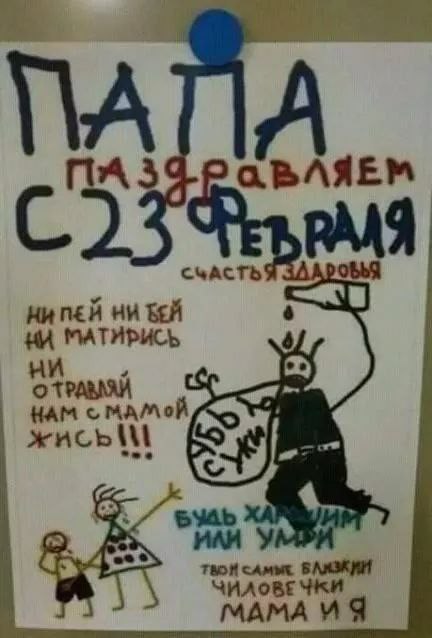 ПАПА
ПАЗДРАВЛЯЕМ
С 23 ФЕВРАЛЯ
СЧАСТЬЯ ЗДАРОВЬЯ
НИ ПЕЙ НИ БЕЙ
НИ МАТИРИСЬ
НИ
ОТРАВЛЯЙ
НАМ С МАМОЙ
ЖИСЬ!!!
БУДЬ ХАРОШИМ
ИЛИ УМРИ
ТВОИ САМЫЕ БЛИЗКИИ
ЧИЛОВЕЧКИ
МАМА И Я